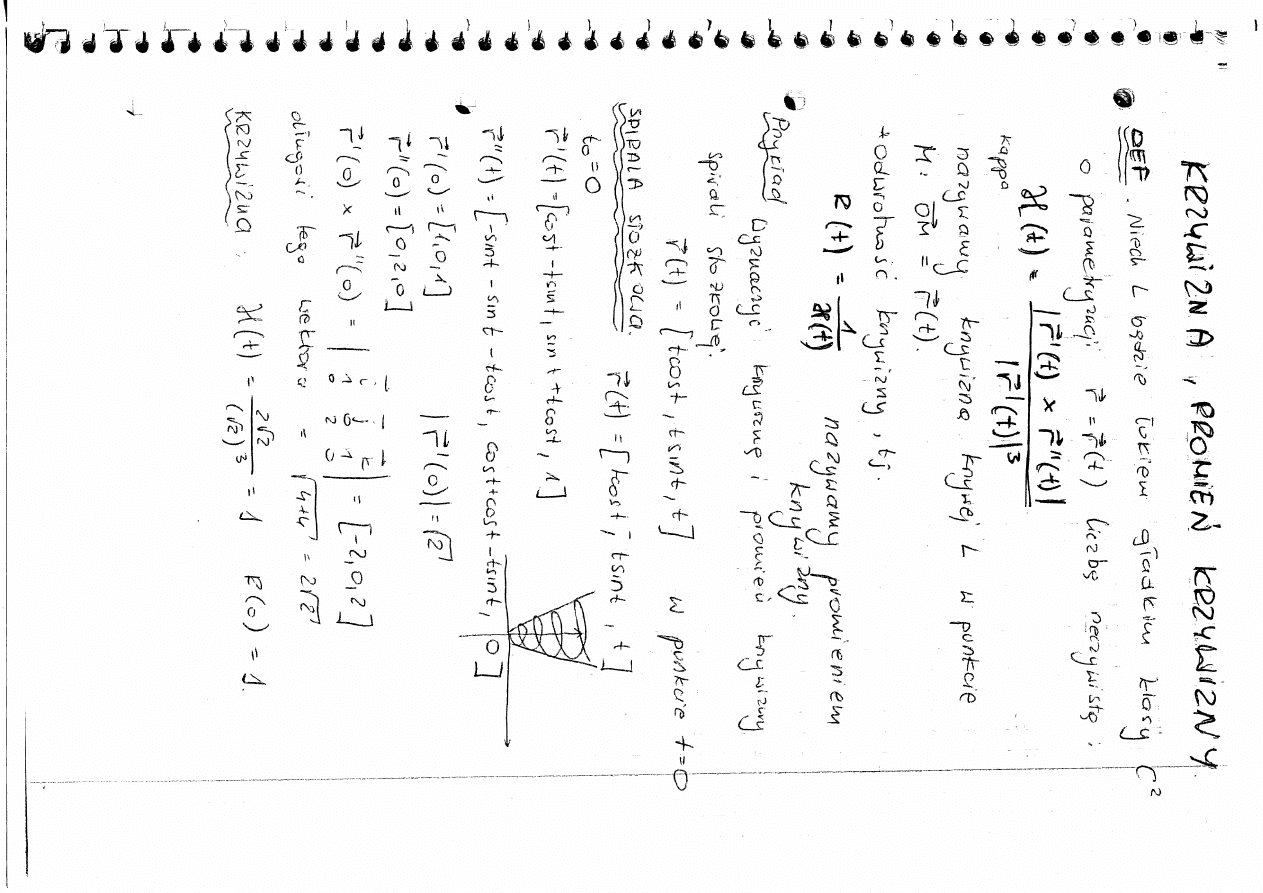 KRZYWIZNA, PROMIEŃ KRZYWIZNY
DEF. Niech L będzie łukiem gładkim klasy C²
o parametryzacji r⃗ = r⃗(t) liczbę rzeczywistą:
kappa
ϰ(t) = |r⃗'(t) × r⃗''(t)| / |r⃗'(t)|³
nazywamy krzywizną krzywej L w punkcie
M: O⃗M = r⃗(t).
+ odwrotność krzywizny, tj.
R(t) = 1/ϰ(t) nazywamy promieniem
krzywizny.
Przykład Wyznaczyć krzywiznę i promień krzywizny
spirali stożkowej.
r⃗(t) = [tcost, tsint, t] w punkcie t=0
SPIRALA STOŻKOWA. r⃗(t) = [tcost, tsint, t]
t₀=0
r⃗'(t) = [cost-tsint, sint+tcost, 1]
r⃗''(t) = [-sint - sint - tcost, cost+cost-tsint, 0]
r⃗'(0) = [1,0,1] |r⃗'(0)| = √2
r⃗''(0) = [0,2,0]
r⃗'(0) × r⃗''(0) = | i⃗ j⃗ k⃗ ; 1 0 1 ; 0 2 0 | = [-2,0,2]
długość tego wektora = √4+4 = 2√2
KRZYWIZNA: ϰ(t) = 2√2 / (√2)³ = 1 R(0) = 1.